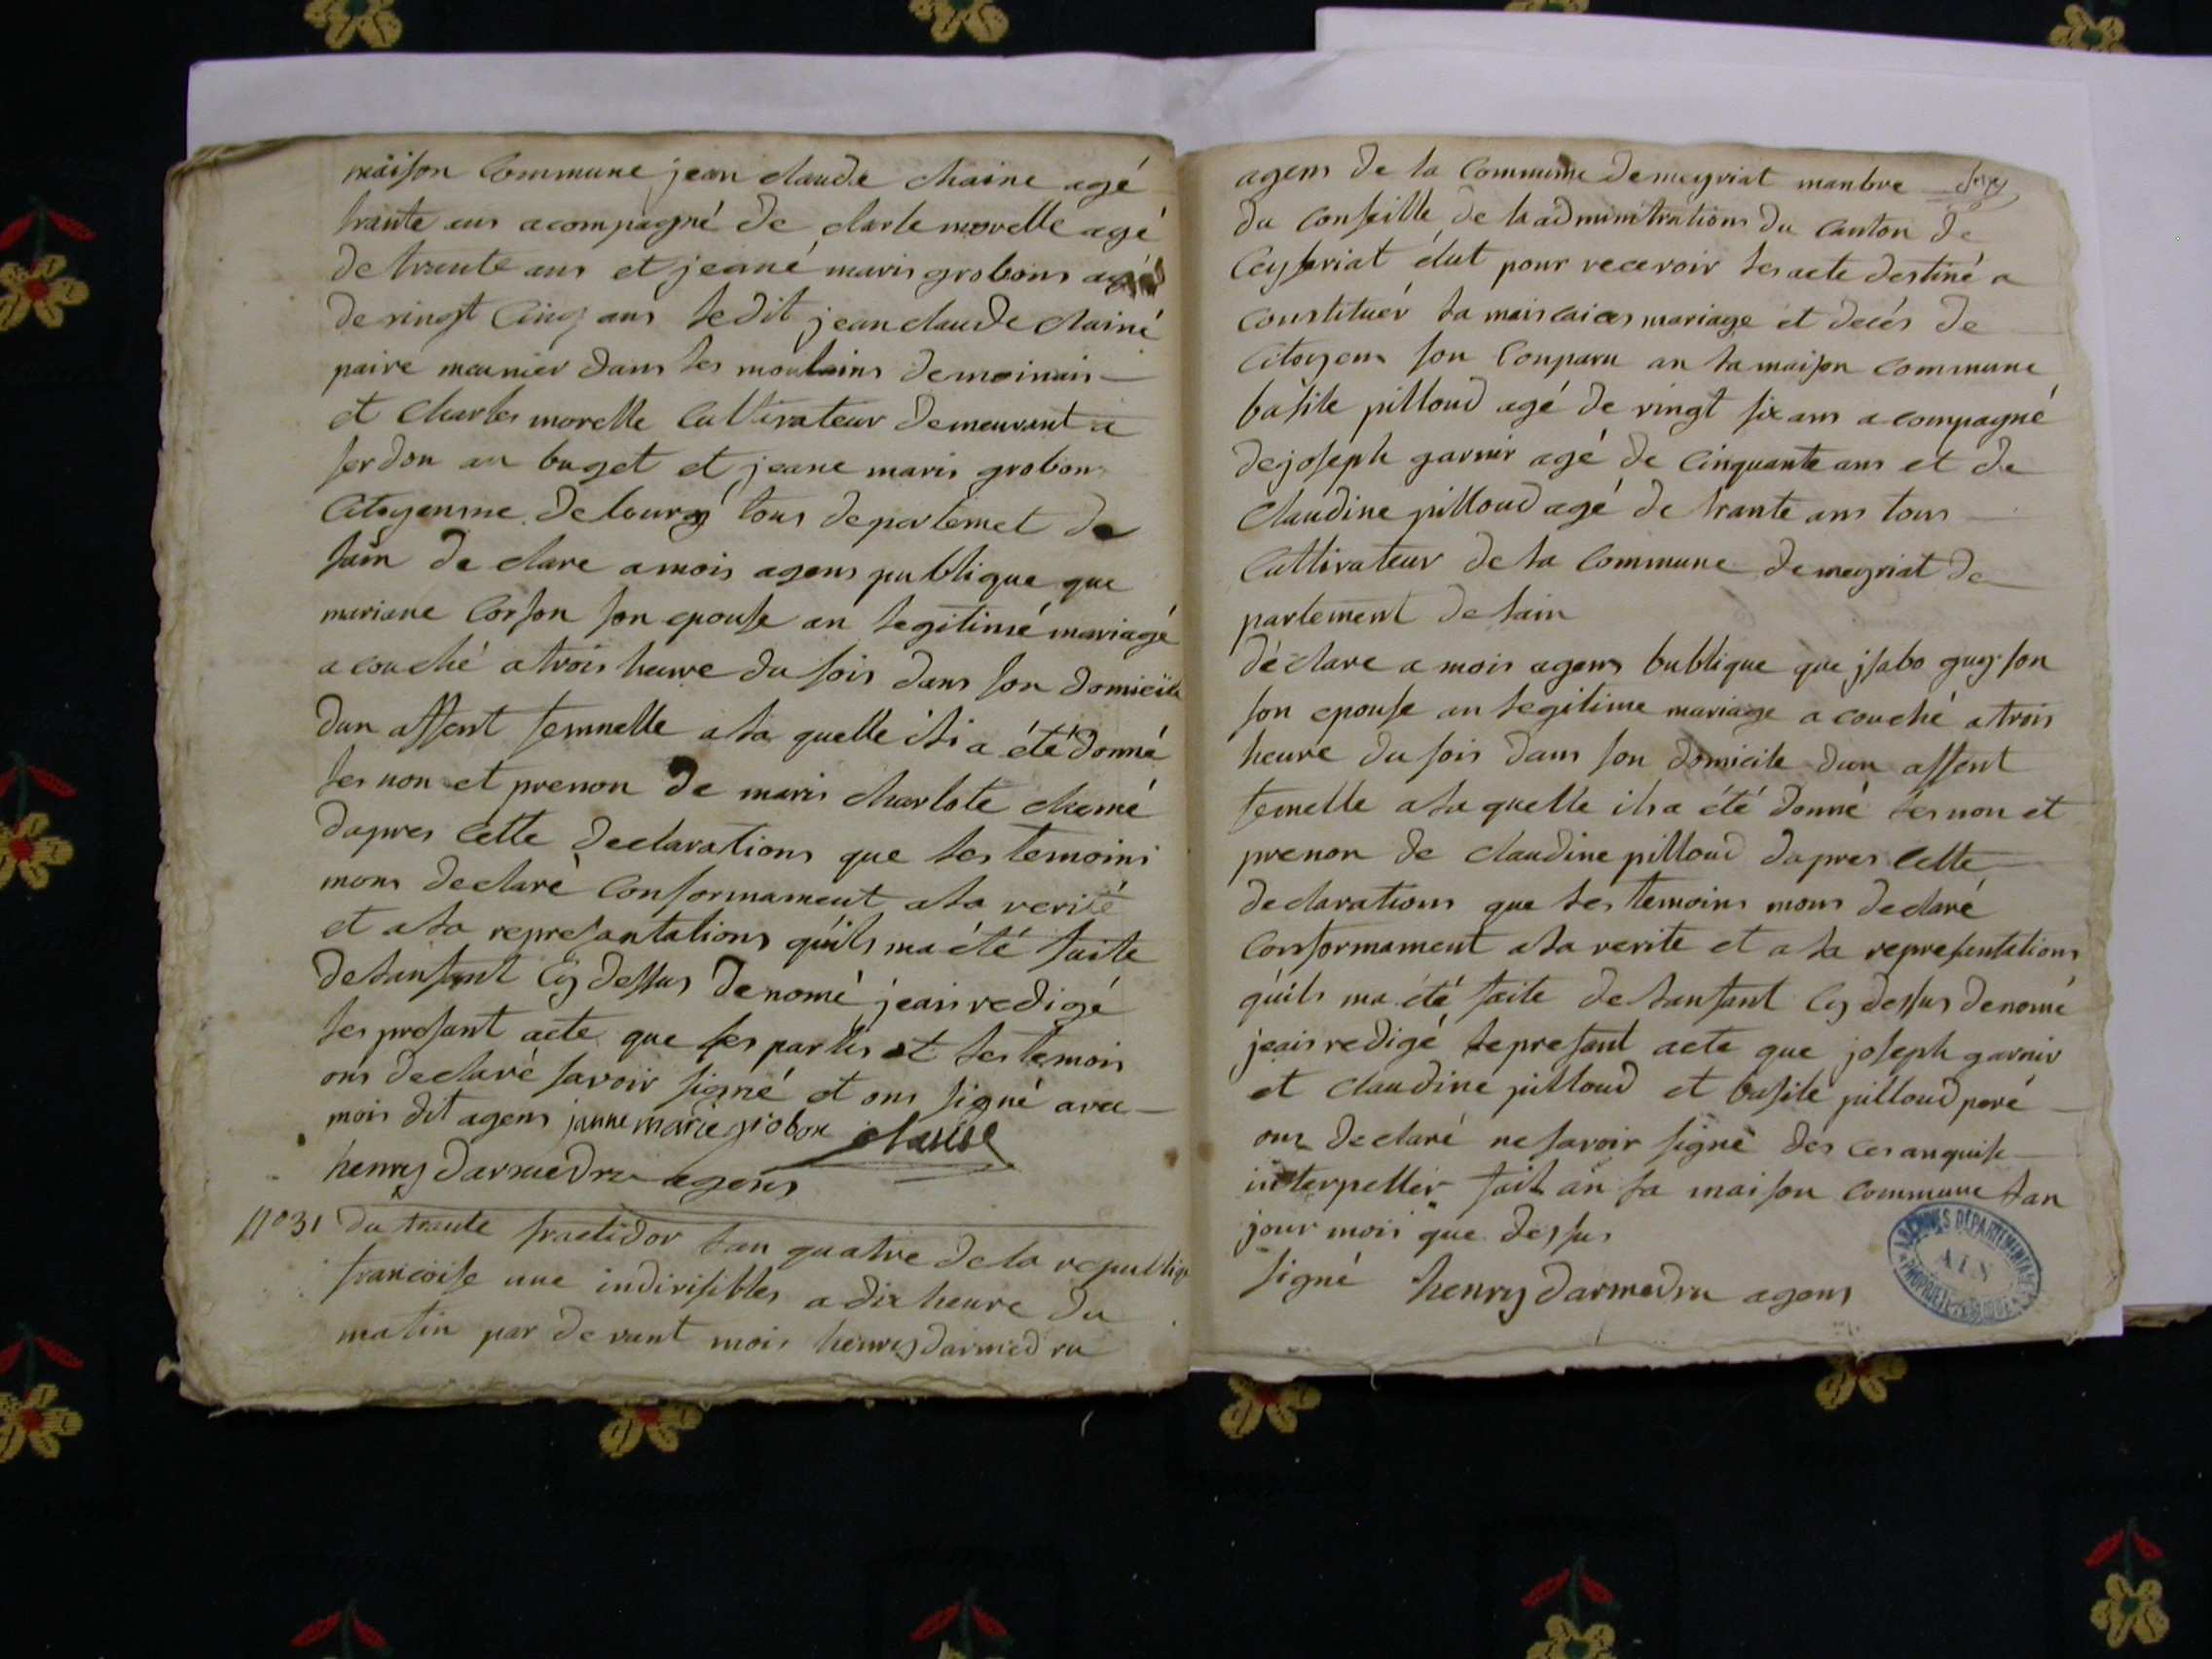 maison Commune jean claude chaine agé
trante ans acompagné de charle morelle agé
de trante ans et jeané maris grobons agé
de vingt Cinq ans ledit jean claude chainé
paire meunier dans les moulains de
et Charles morelle Cultivateur demeurant a
serdon au buget et jeane maris grobon
Citoyenne de bourg tous departemet de
lain de clare a mois agens publique que
mariane Corson son epouse an legitimé mariagé
acouché a trois heure du sois dans son domicile
dun affent femnelle a la quelle ili a été donné
les non et prenon de maris charlote chainé
dapres Cette declarations que les temoins
mons declaré Conformament a la verité
et a la represantations quils ma été faite
de lanfant Cy dessus denomé jeais redigé
les presant acte que les partis et les temois
ons declaré savoir signé et ons signé avec
mois dit agens janne marie grobon chaine
henry darmedru agens
n° 31 du trante fructidor lan quatre de la republiq
francoise une indivisibles a dix heure du
matin par devant mois henry darmedru
agens de la Commune de meyriat manbre
du Conseille de la adminitrations du Canton de
Ceyseriat élut pour recevoir les acte destiné a
Constituér la naiscaices mariage et decés de
Citoyens son Conparu an la maison Commune
basile pilloud agé de vingt six ans acompagné
de joseph garnir agé de Cinquante ans et de
Claudine pilloud agé de trante ans tous
Cultivateur de la Commune de meyriat de
partement de lain
déclare a mois agens bublique que jsabo guyson
son epouse an legitime mariage a couché a trois
heure du sois dans son domicile dun affent
femelle a la quelle ils a été donné les non et
prenon de Claudine pilloud dapres Cette
declarations que les temoins mons declaré
Conformament a la verite et a la representations
quils ma été faite de lanfant Cy dessus denomé
jeais redigé le presant acte que joseph garnir
et Claudine pilloud et basile pilloud peré
ons declaré ne savoir signé des ces anquise
interpellér fait an la maison Commune lan
jour mois que dessus
signé henry darmedru agens
ARCHIVES DÉPARTEMENTALES
AIN
PROPRIÉTÉ PUBLIQUE